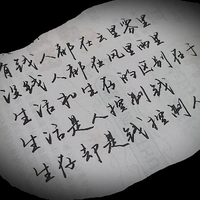 有钱人都在云里雾里
没钱人都在风里雨里
生活和生存的区别在于
生活是人控制钱
生存却是钱控制人